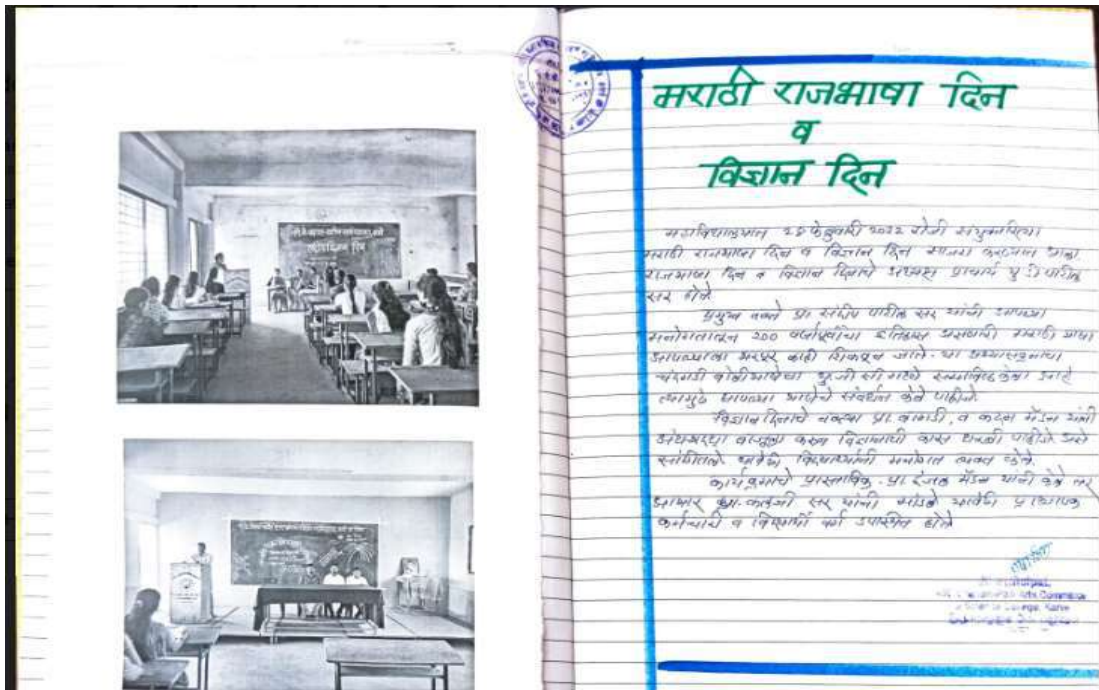 मराठी राजभाषा दिन
व
विज्ञान दिन
महाविद्यालयात 28 फेब्रुवारी 2022 रोजी संयुक्तरित्या
मराठी राजभाषा दिन व विज्ञान दिन साजरा करण्यात आला.
राजभाषा दिन व विज्ञान दिनाचे अध्यक्ष प्राचार्य पाटील
सर होते
प्रमुख वक्ते प्रा. संदीप पाटील सर यांनी आपल्या
मनोगतातून 200 वर्षापूर्वीचा इतिहास असणारी मराठी भाषा
आपल्याला भरपूर काही शिकवून जाते. या अभ्यासक्रमाचा
चंदगडी बोलीभाषेचा समाविष्ट केला आहे
त्यामुळे आपल्या भाषेचे संवर्धन केले पाहीजे.
विज्ञान दिनाचे वक्त्या प्रा. व कदम मॅडम यांनी
अंधश्रध्दा बाजूला करून विज्ञानाची कास धरली पाहीजे असे
सांगीतले यावेळी विद्यार्थ्यांनी मनोगत व्यक्त केले.
कार्यक्रमाचे प्रास्ताविक प्रा. मॅडम यांनी केले तर
आभार प्रा. सर यांनी मांडले यावेळी प्राध्यापक
कर्मचारी व विद्यार्थी वर्ग उपस्थित होते
Arts Commerce
Science College